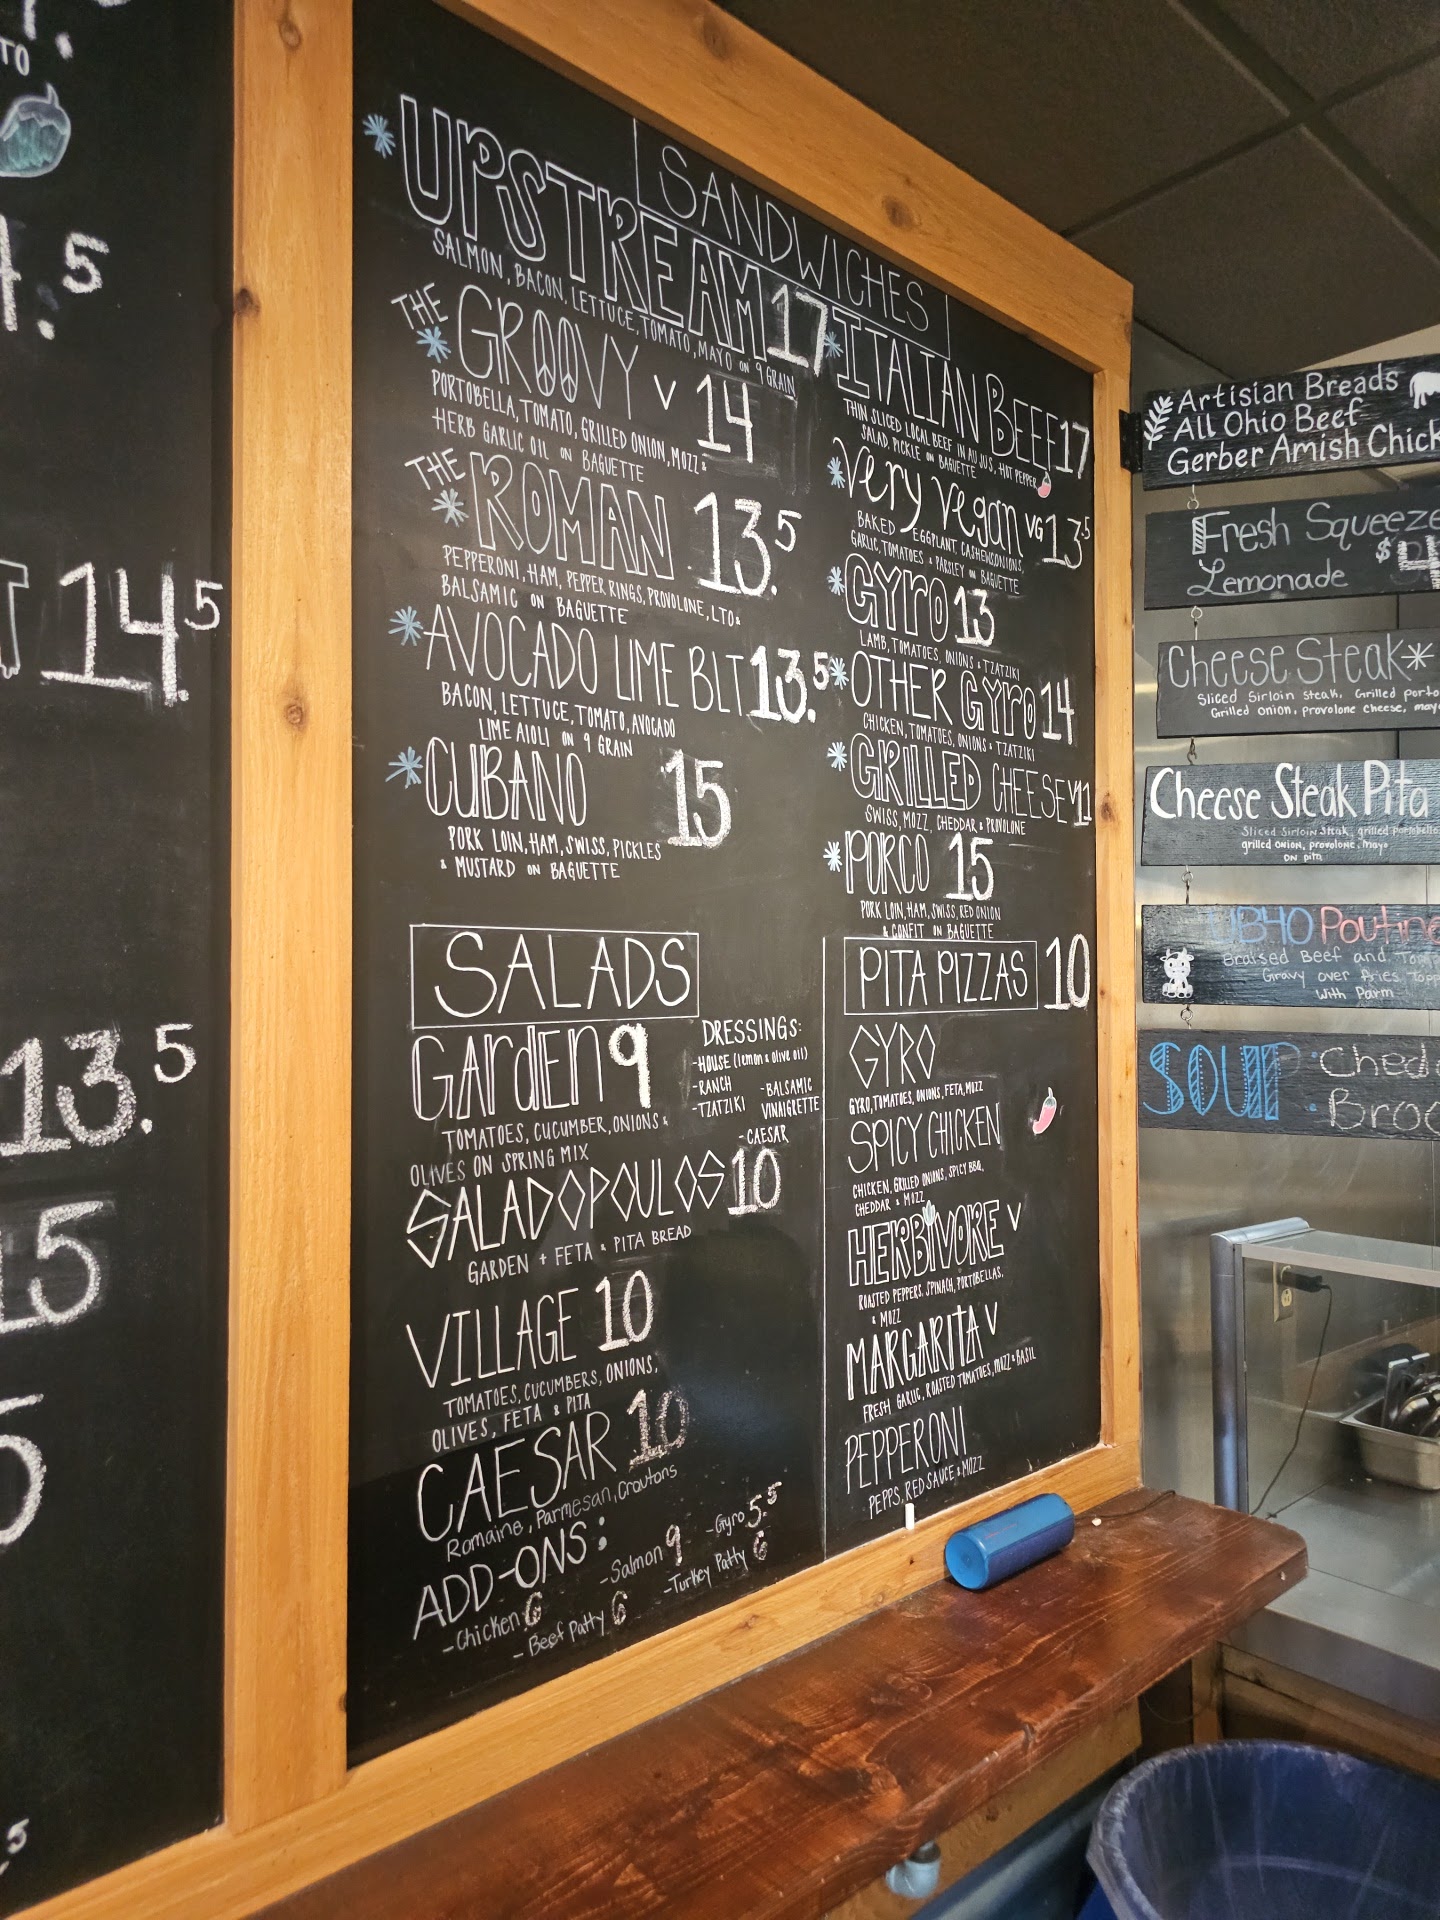 TO
4.5
T 14.5
13.5
15
5
5
SANDWICHES
UPSTREAM 17
SALMON, BACON, LETTUCE, TOMATO, MAYO ON 9 GRAIN
THE GROOVY V 14
PORTOBELLA, TOMATO, GRILLED ONION, MOZZ &
HERB GARLIC OIL ON BAGUETTE
THE ROMAN 13.5
PEPPERONI, HAM, PEPPER RINGS, PROVOLONE, LTO &
BALSAMIC ON BAGUETTE
AVOCADO LIME BLT 13.5
BACON, LETTUCE, TOMATO, AVOCADO
LIME AIOLI ON 9 GRAIN
CUBANO 15
PORK LOIN, HAM, SWISS, PICKLES
& MUSTARD ON BAGUETTE
ITALIAN BEEF 17
THIN SLICED LOCAL BEEF IN AU JUS, HOT PEPPER
SALAD, PICKLE ON BAGUETTE
Very Vegan VG 13.5
BAKED EGGPLANT, CASHEWS, ONIONS,
GARLIC, TOMATOES & PARSLEY ON BAGUETTE
GYRO 13
LAMB, TOMATOES, ONIONS & TZATZIKI
OTHER GYRO 14
CHICKEN, TOMATOES, ONIONS & TZATZIKI
GRILLED CHEESE V 11
SWISS, MOZZ, CHEDDAR & PROVOLONE
PORCO 15
PORK LOIN, HAM, SWISS, RED ONION
& CONFIT ON BAGUETTE
SALADS
GArdEn 9
TOMATOES, CUCUMBER, ONIONS &
OLIVES ON SPRING MIX
DRESSINGS:
-HOUSE (lemon & olive oil)
-RANCH
-TZATZIKI
-BALSAMIC
VINAIGRETTE
-CAESAR
SALADOPOULOS 10
GARDEN + FETA & PITA BREAD
VILLAGE 10
TOMATOES, CUCUMBERS, ONIONS,
OLIVES, FETA & PITA
CAESAR 10
Romaine, Parmesan, Croutons
ADD-ONS:
-Chicken 6
-Salmon 9
-Gyro 5.5
-Beef Patty 6
-Turkey Patty 6
PITA PIZZAS 10
GYRO
GYRO, TOMATOES, ONIONS, FETA, MOZZ
SPICY CHICKEN
CHICKEN, GRILLED ONIONS, SPICY BBQ,
CHEDDAR & MOZZ
HERBIVORE V
ROASTED PEPPERS, SPINACH, PORTOBELLAS,
& MOZZ
MARGARITA V
FRESH GARLIC, ROASTED TOMATOES, MOZZ & BASIL
PEPPERONI
PEPPS, RED SAUCE & MOZZ
Artisian Breads
All Ohio Beef
Gerber Amish Chick
Fresh Squeeze
Lemonade $4
Cheese Steak*
Sliced Sirloin Steak, Grilled porto
Grilled Onion, provolone cheese, mayo
Cheese Steak Pita
Sliced Sirloin Steak, grilled portobello,
grilled onion, provolone, mayo
on pita
UB40 Poutine
Braised Beef and
Gravy over Fries Topp
with Parm
SOUP: Chedd
Broc